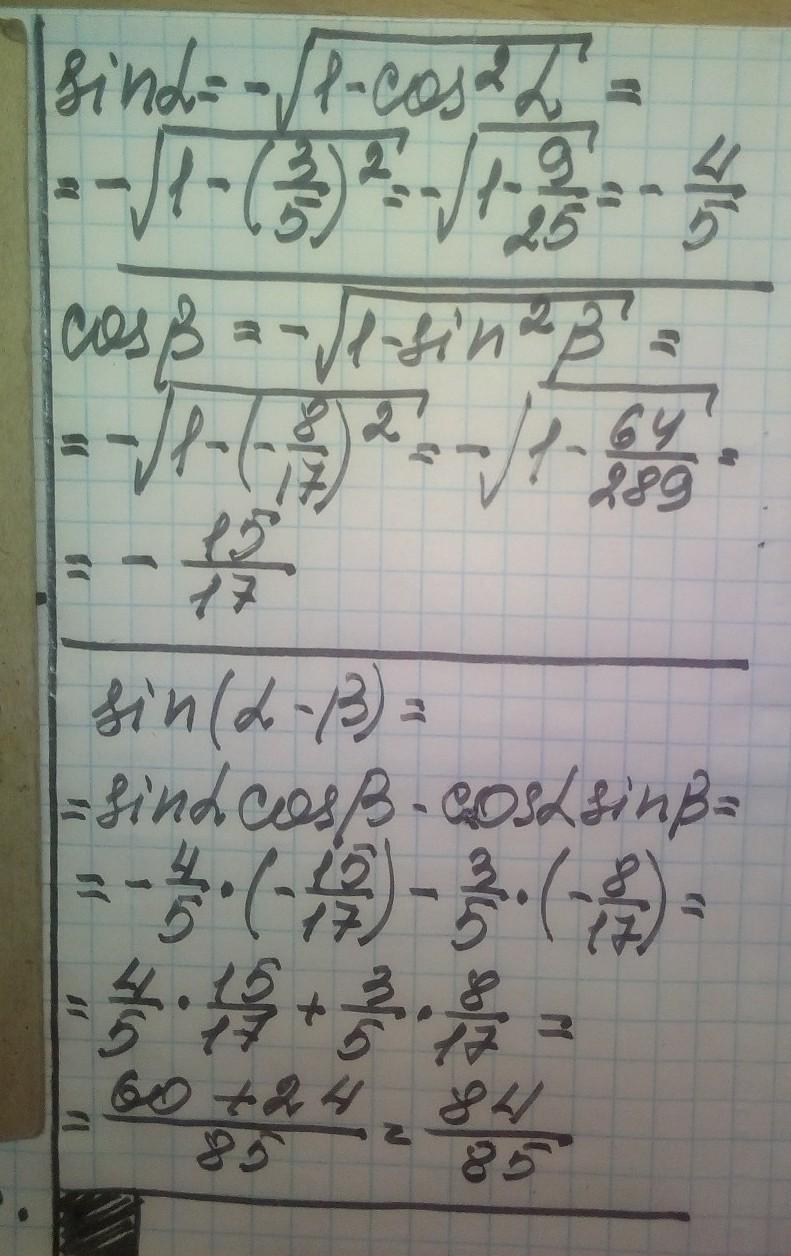 sinα = -√(1-cos²α) =
= -√(1-(3/5)²) = -√(1-9/25) = -4/5
cosβ = -√(1-sin²β) =
= -√(1-(-8/17)²) = -√(1-64/289) =
= -15/17
sin(α-β) =
= sinα cosβ - cosα sinβ =
= -4/5·(-15/17) - 3/5·(-8/17) =
= 4/5·15/17 + 3/5·8/17 =
= (60+24)/85 = 84/85